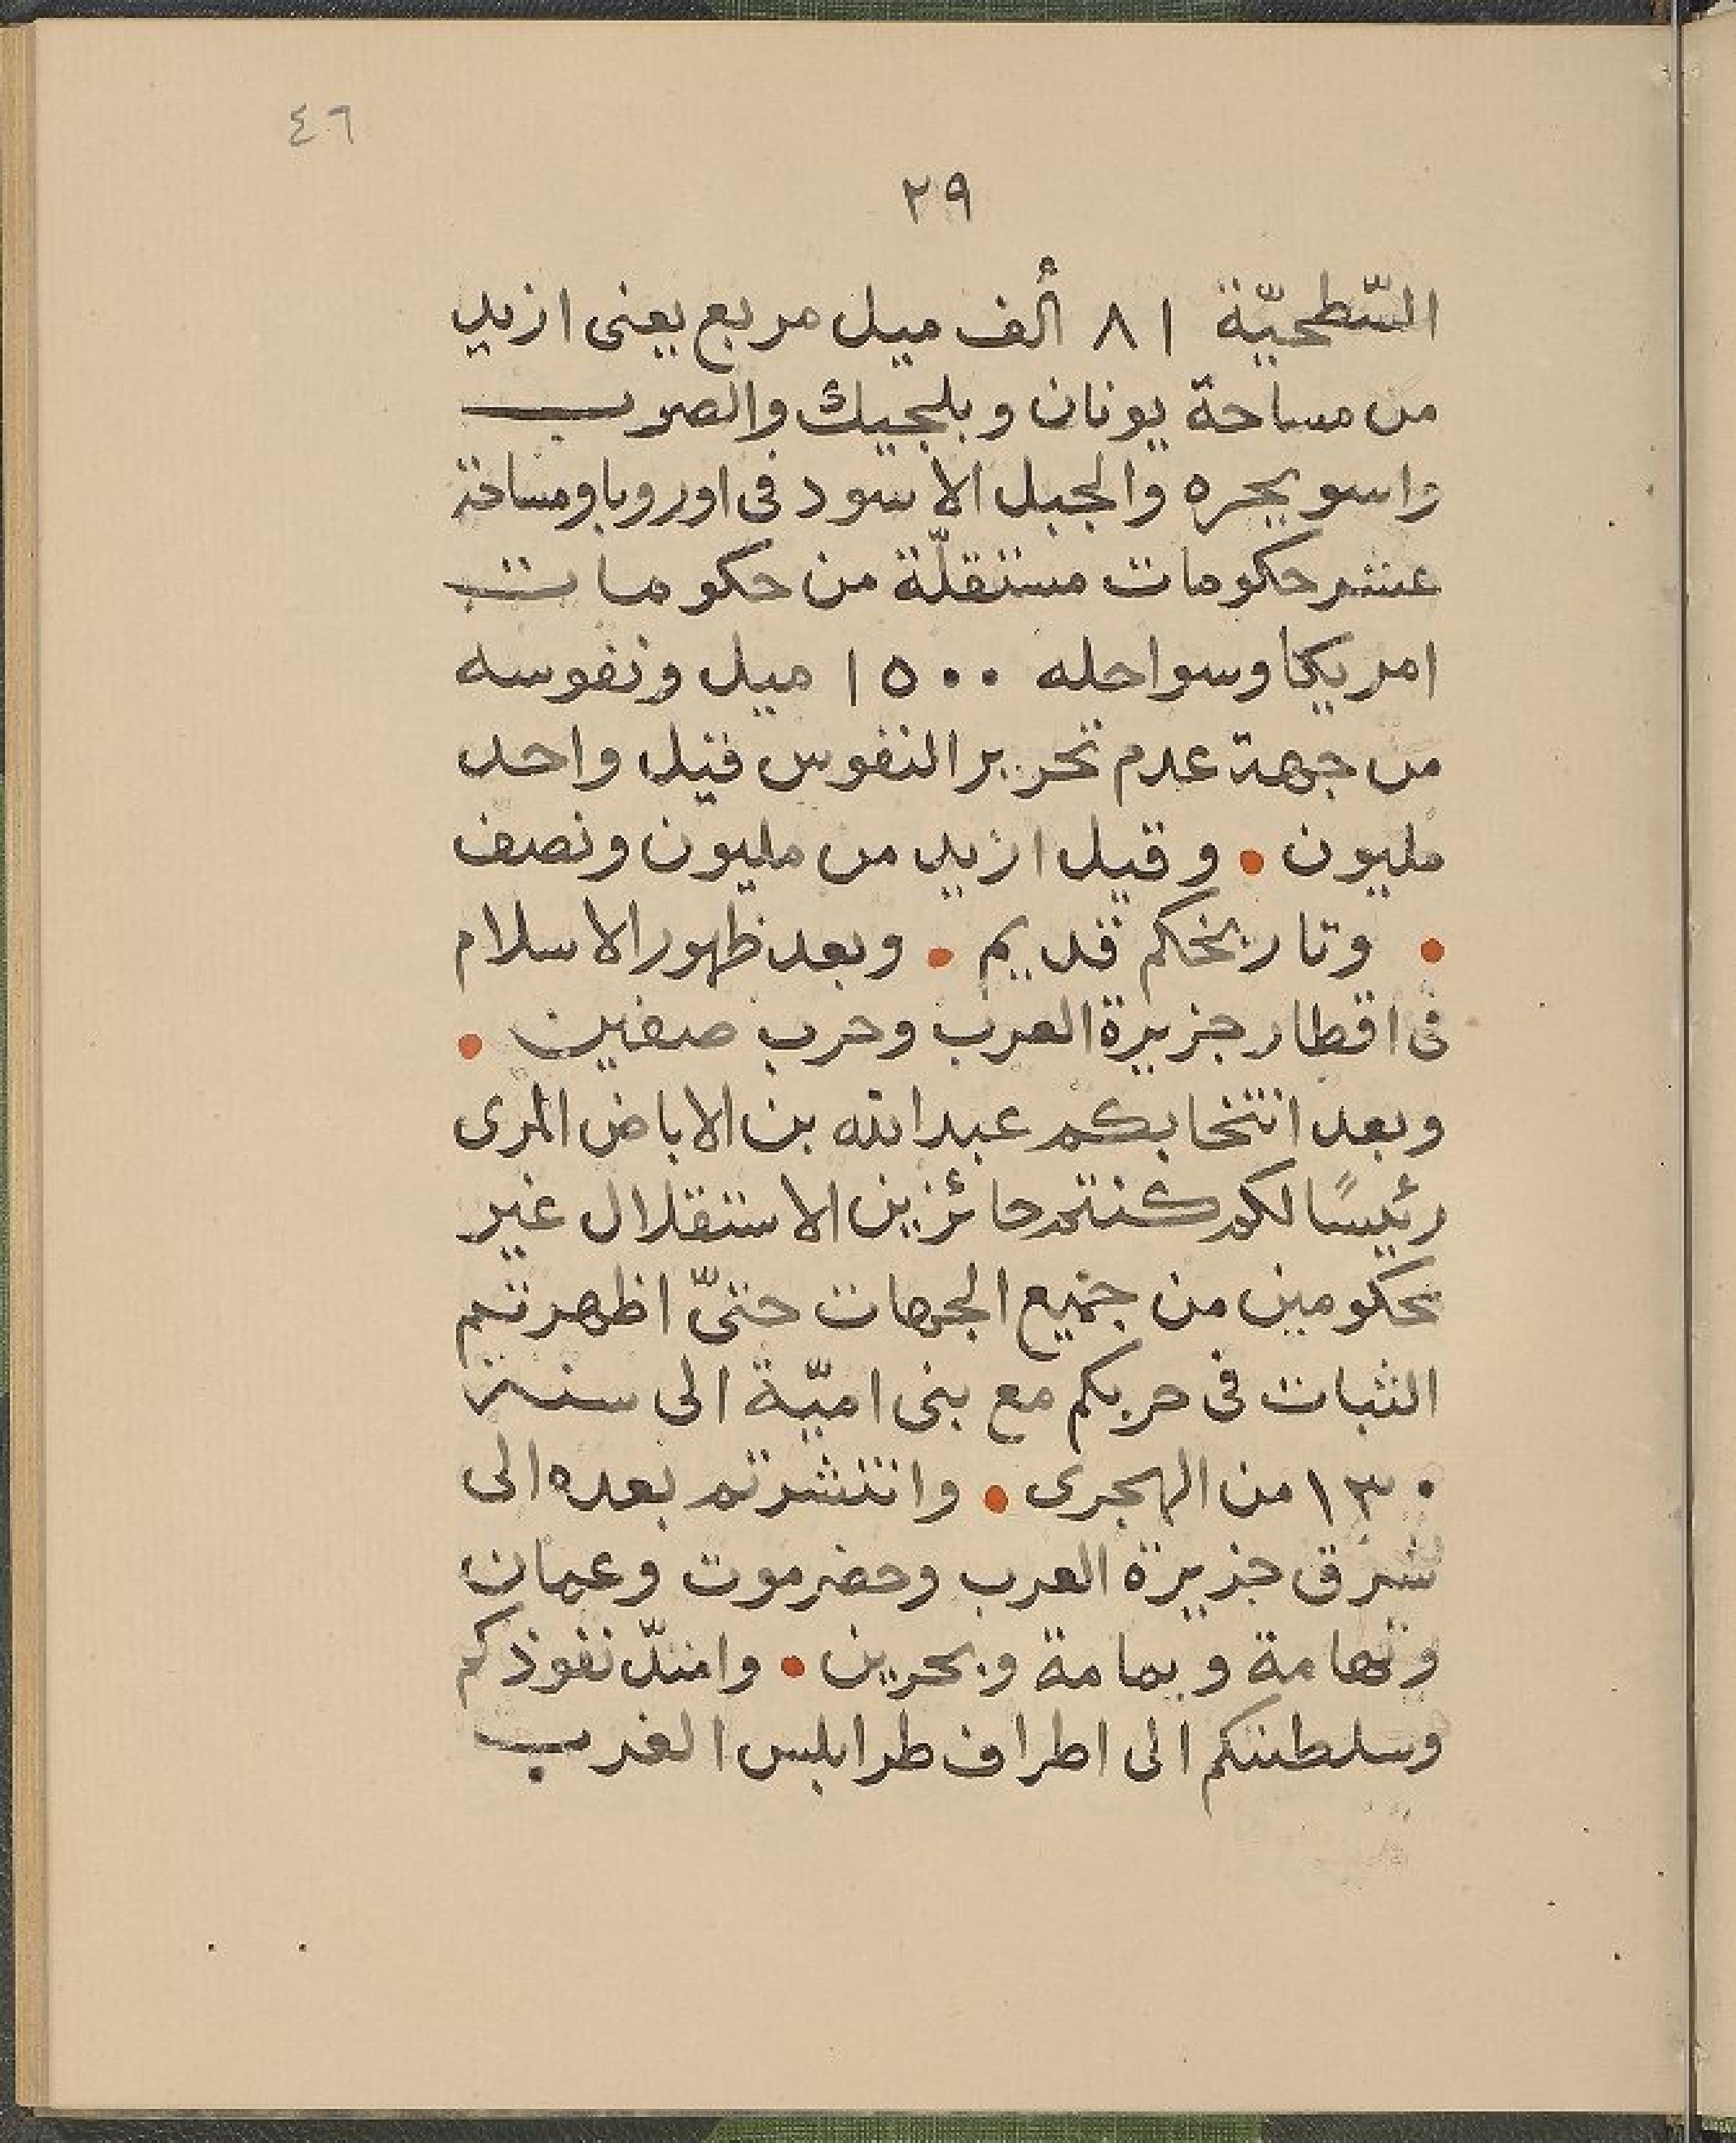 ٤٦
٢٩
السّطحيّة ٨١ ألف ميل مربع يعنى ازيد
من مساحة يونان وبلجيك والصرب
واسويجره والجبل الاسود فى اوروبا ومساحة
عشر حكومات مستقلّة من حكومات
امريكا وسواحله ١٥٠٠ ميل ونفوسه
من جهة عدم تحرير النفوس قيل واحد
مليون • وقيل ازيد من مليون ونصف
• وتاريخكم قديم • وبعد ظهور الاسلام
فى اقطار جزيرة العرب وحرب صفين •
وبعد انتخابكم عبد الله بن الاباض المرى
رئيسًا لكم كنتم حائزين الاستقلال غير
محكومين من جميع الجهات حتىّ اظهرتم
الثبات فى حربكم مع بنى اميّة الى سنة
١٣٠ من الهجرى • وانتشرتم بعده الى
شرق جزيرة العرب وحضرموت وعمان
وتهامة ويمامة وبحرين • وامتدّ نفوذكم
وسلطنتكم الى اطراف طرابلس الغرب